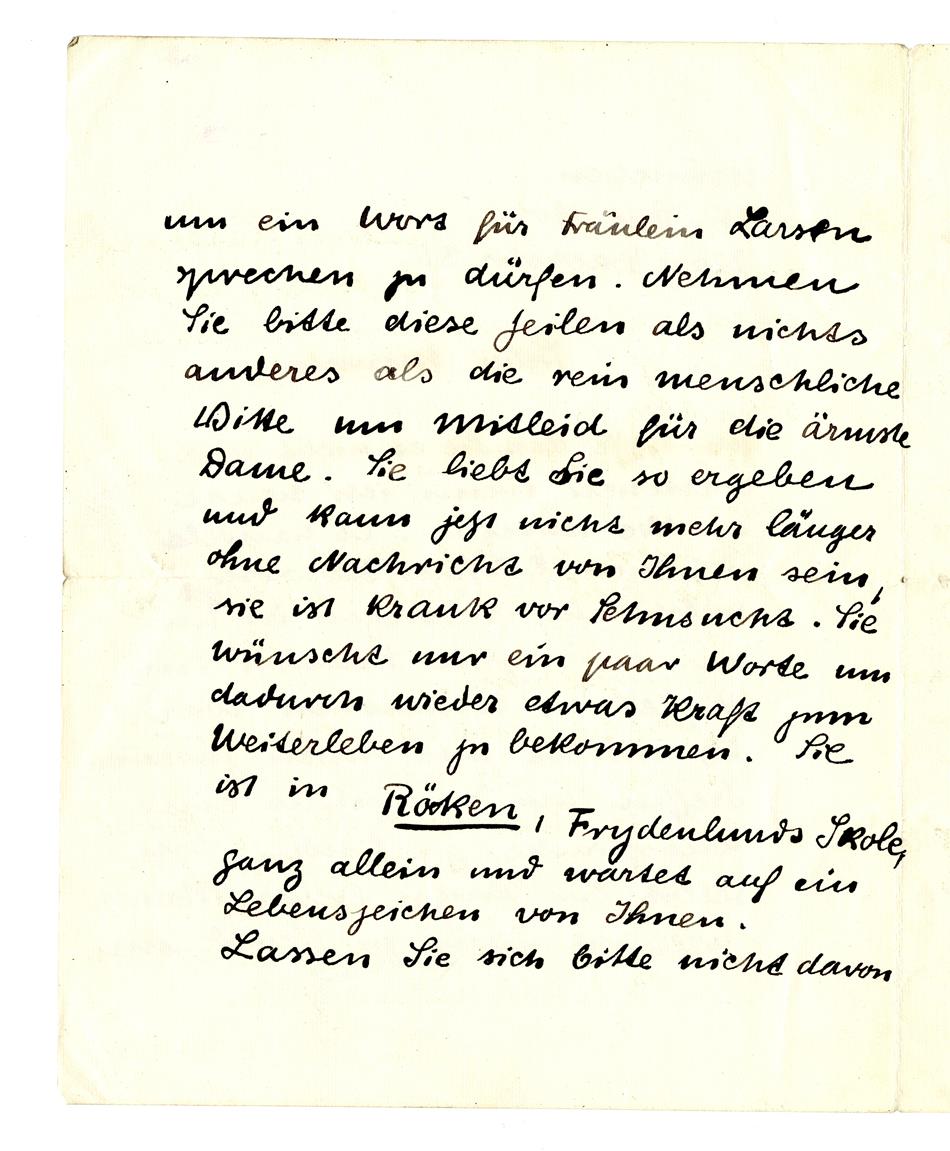 um ein Wort für Fräulein Larsen
sprechen zu dürfen. Nehmen
Sie bitte diese Zeilen als nichts
anderes als die rein menschliche
Bitte um Mitleid für die ärmste
Dame. Sie liebt Sie so ergeben
und kann jetzt nicht mehr länger
ohne Nachricht von Ihnen sein,
sie ist krank vor Sehnsucht. Sie
wünscht nur ein paar Worte um
dadurch wieder etwas Kraft zum
Weiterleben zu bekommen. Sie
ist in Röken, Frydenlunds Skole,
ganz allein und wartet auf ein
Lebenszeichen von Ihnen.
Lassen Sie sich bitte nicht davon